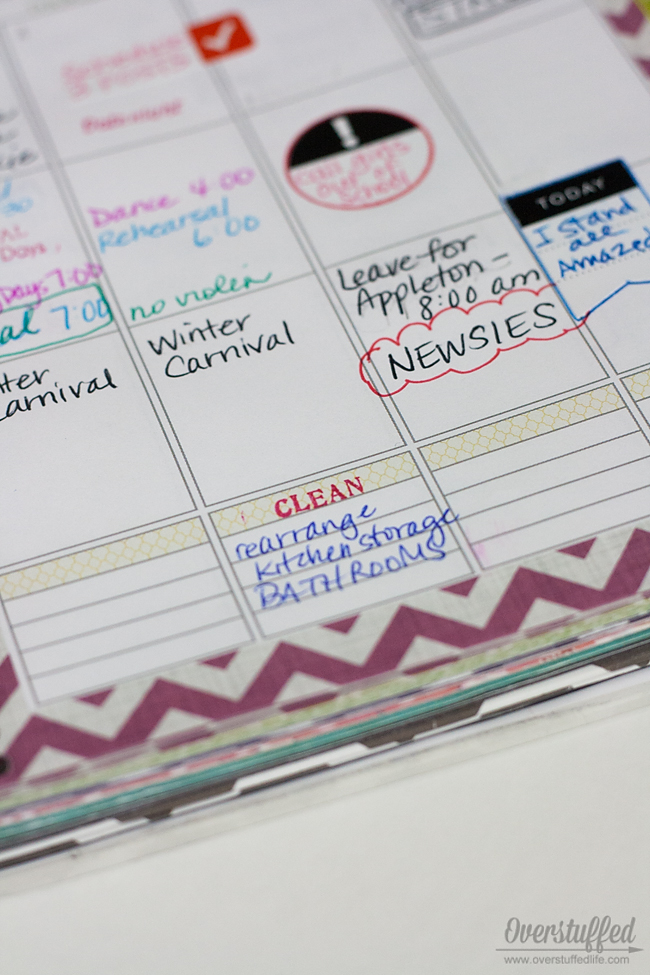 Dance 4:00
Rehearsal
6:00
no violin
call girls
out of
school
TODAY
I stand
all
Amazed
Day: 7:00
7:00
Winter
Carnival
Leave for
Appleton -
8:00 am
NEWSIES
Carnival
CLEAN
rearrange
kitchen storage
BATHROOMS
Overstuffed
www.overstuffedlife.com